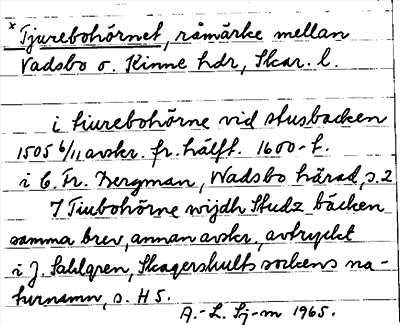 *Tjurebohörnet, råmärke mellan
Vadsbo o. Kinne hdr, Skar. l.
i tiurebohörne vid stusbacken
1505 6/11 avskr. fr. hälft. 1600-t.
i C. Fr. Bergman, Wadsbo härad, s. 2
I Tiubohörne wijdh Studz bäcken
samma brev, annan avskr., avtryckt
i J. Sahlgren, Skagershults sockens na-
turnamn, s. H 5.
A.-L. Sj-m 1965.